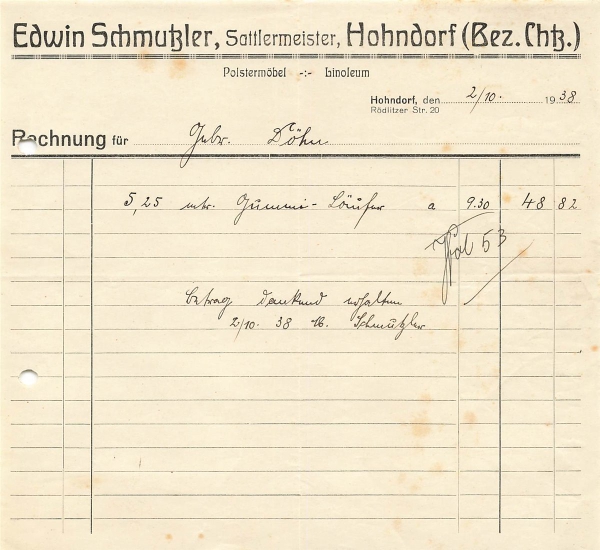 Edwin Schmutzler, Sattlermeister, Hohndorf (Bez. Chtz.)
Polstermöbel -:- Linoleum
Hohndorf, den 2/10. 1938
Rödlitzer Str. 20
Rechnung für Gebr. Döhn
5,25 mtr. Gummi-Läufer a 9.30 48 82
53
Betrag dankend erhalten
2/10. 38 Schmutzler